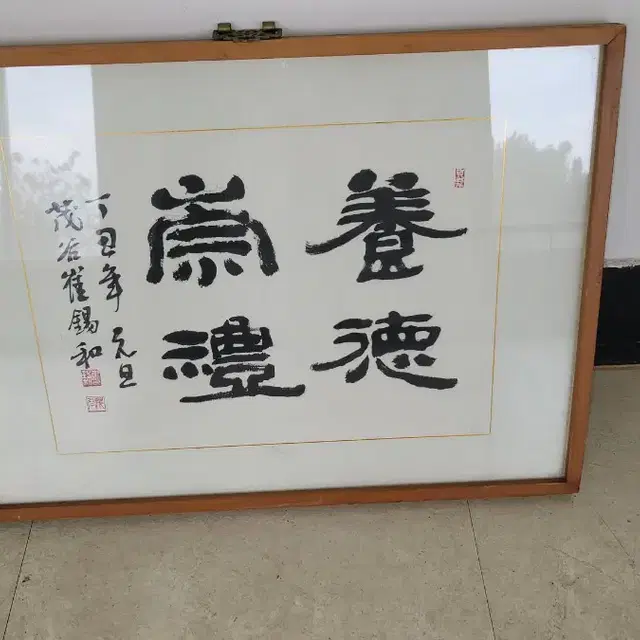 養德
崇禮
丁丑年 元旦
茂谷崔錫和